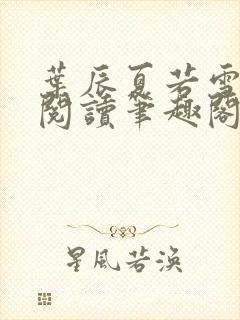 葉辰夏若雪
閱讀筆趣閣
星風若渙